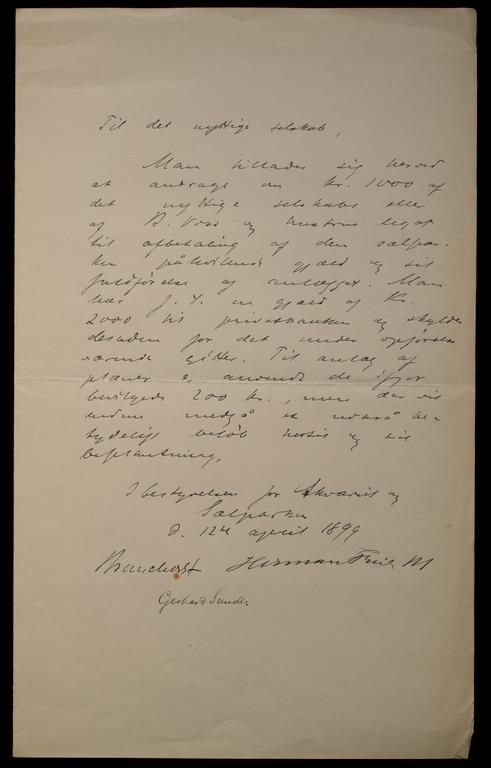 Til det nyttige selskab,
Man tillader sig herved
at andrage om kr. 1000 af
det nyttige selskabs eller
af B. Voss og hustrus legat
til afbetaling af den sælpar-
ken påhvilende gjæld og til
fuldførelse af anlægget. Man
har f. T. en gjæld af Kr.
2000 til privatbanken og skylder
desuden for det under opførelse
værende gitter. Til anlæg af
plæner er anvendt de ifjor
bevilgede 200 kr., men der vil
endnu medgå et också be-
tydeligt beløb hertil og til
beplantning.
I bestyrelsen for Akvariet og
Sælparken
d. 12te april 1899
Brunchorst Herman Friele
Gerhard Sundt